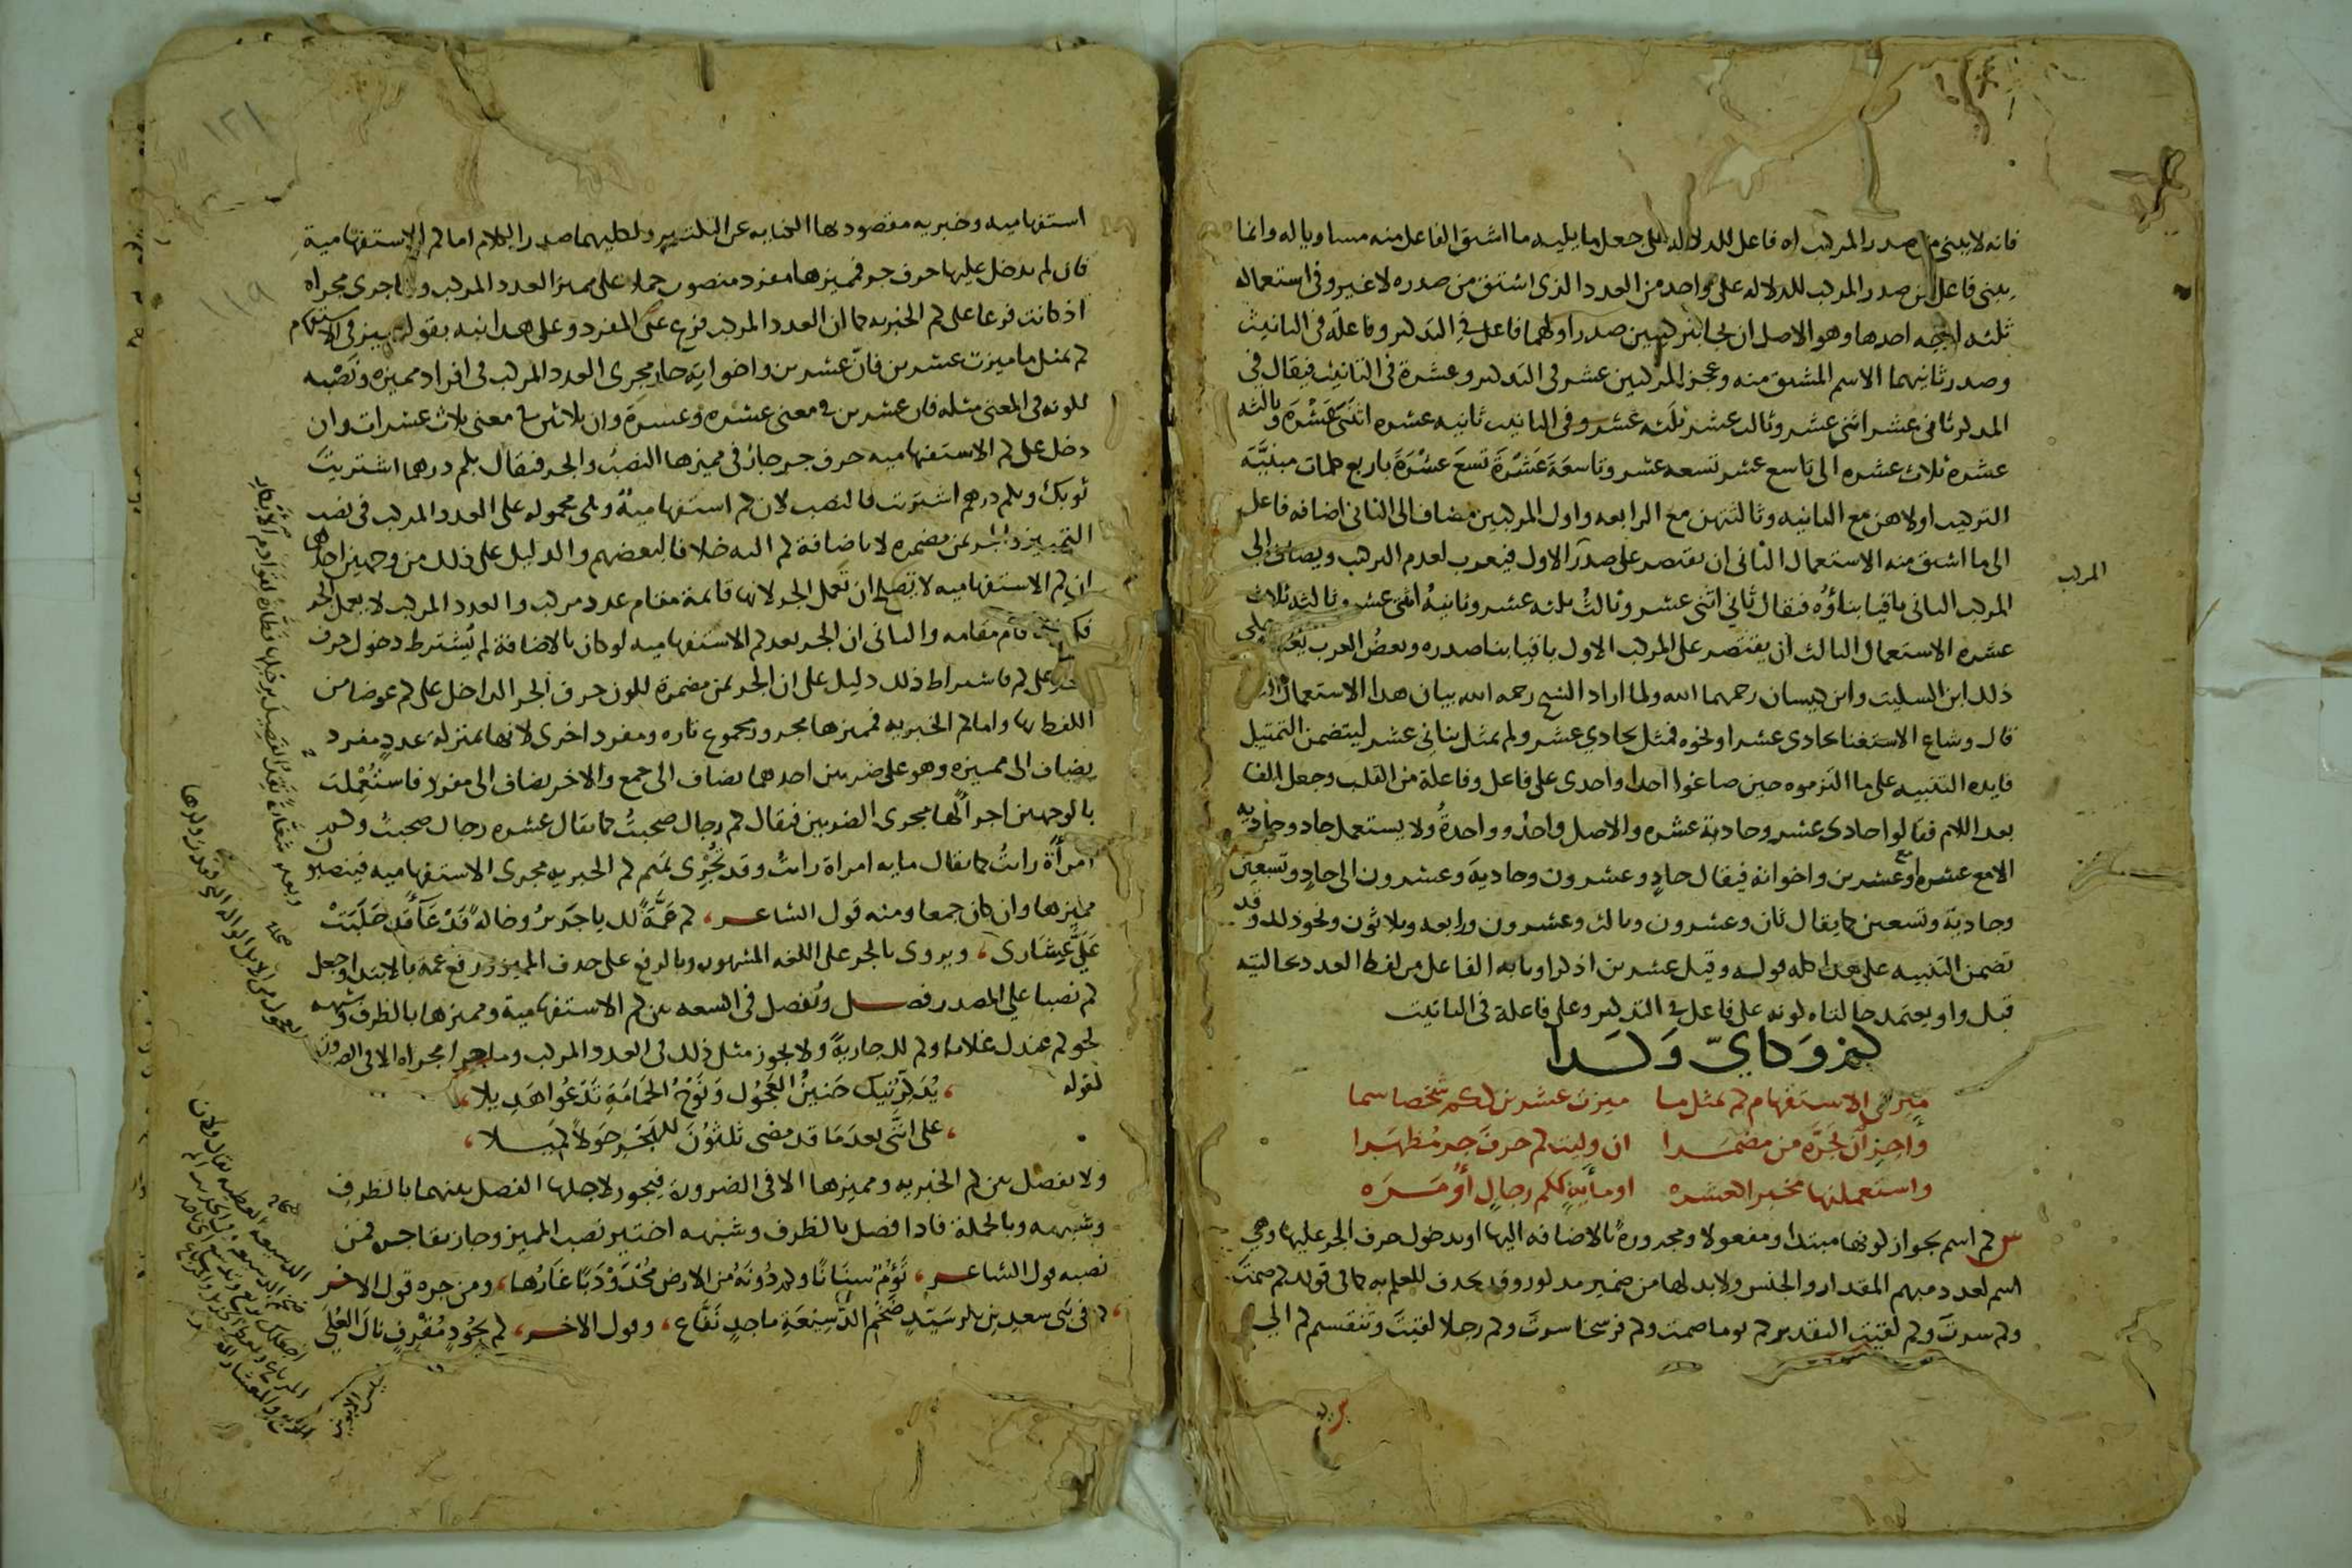 فانه لا يبنى من صدر المركب له فاعل للدلالة على جعل ما يليه ما اشتق الفاعل منه مساويا له وانما
يبنى فاعل من صدر المركب للدلاله على واحد من العدد الذى اشتق من صدره لا غير وفى استعماله
ثلثه اوجه احدها وهو الاصل ان يجا بتركيبين صدر اولهما فاعل فى التذكير وفاعلة فى التانيث
وصدر ثانيهما الاسم المشتق منه وعجز المركبين عشر فى التذكير وعشرة فى التانيث فيقال فى
المذكر ثانى عشر اثنى عشر وثالث عشر ثلثه عشر وفى التانيث ثانيه عشره اثنتى عَشْرَة وثالثه
عشره ثلاث عشره الى تاسع عشر تسعه عشر وتاسعَةَ عَشْرَةَ تسعَ عَشْرَةَ باربع كلمات مبنيَّة
التركيب اولاهن مع الثانيه وثالثتهن مع الرابعه واول المركبين مضاف الى الثانى اضافه فاعل
الى ما اشتق منه الاستعمال الثانى ان يقتصر على صدر الاول فيعرب لعدم التركيب ويضاف الى
المركب
المركب الثانى باقيا بناؤه فيقال ثانى اثنى عشر وثالثُ ثلثه عشر وثانيةُ اثنتى عشره وثالثه ثلاث
عشره الاستعمال الثالث ان يقتصر على المركب الاول باقيا بنا صدره وبعضُ العرب يُعربه حكى
ذلك ابن السكيت وابن كيسان رحمهما الله ولما اراد الشيخ رحمه الله بيان هذا الاستعمال
قال وشاع الاستغنا بحادى عشرا ونحوه فمثل بحادي عشر ولم يمثل بثانى عشر ليتضمن التمثيل
فايده التنبيه على ما التزموه حين صاغوا احدا واحدى على فاعل وفاعلة من القلب وجعل الفا
بعد اللام فقالوا حادى عشر وحادية عشره والاصل واحدٌ وواحدةٌ ولا يستعمل حاد وحاديه
الا مع عشره او مع عشرين واخواته فيقال حادٍ وعشرون وحاديه وعشرون الى حادٍ وتسعين
وحادية وتسعين كما يقال ثان وعشرون وثالث وعشرون ورابعه وثلاثون ونحو ذلك وقد
تضمن التنبيه على هذا كله قوله وقبل عشرين اذكرا وبابه الفاعل من لفظ العدد بحالتيه
قبل واو يعتمد حالتاه كونه على فاعل فى التذكير وعلى فاعلة فى التانيث
كم وكايّ وكذا
ميز فى الاستفهام كم بمثل ما ميزت عشرين ككم شخصا سما
واجز ان تجرَّه من مضمرا ان وليت كم حرفَ جرٍ مُظهَرا
واستعملنها مخبرا كعشره او مأيةٍ ككم رجالٍ أو مَرَه
س كم اسم بجواز كونها مبتدا ومفعولا ومجرورة بالاضافه اليها او بدخول حرف الجر عليها وهي
اسم لعدد مبهم المقدار والجنس ولا بد لها من ضمير مذكور وقد يحذف للعلم به كما فى قولك كم صمتَ
وكم سرتَ وكم لقيتَ التقدير كم يوما صمت وكم فرسخا سرتَ وكم رجلا لقيتَ وتنقسم كم الى
١٢١
١١٩
استفهاميه وخبريه مقصود بها الكنايه عن التكثير ولكليهما صدر الكلام اما كم الاستفهاميةِ
فان لم يدخل عليها حرف جر فمميزها مفرد منصوب حملا على مميز العدد المركب واجرى مجراه
اذ كانت فرعا على كم الخبريه كما ان العدد المركب فرع على المفرد وعلى هذا نبه بقوله ميز فى الاستفهام
كم بمثل ما ميزت عشرين فانّ عشرين واخواتِه جارٍ مجرى العدد المركب فى افراد مميزه ونَصْبه
لكونه فى المعنى مثله فان عشرين فى معنى عشره وعشرة وان ثلاثين فى معنى ثلاث عشرات وان
دخل على كم الاستفهاميه حرف جر جاز فى مميزها النصبُ والجر فيقال بكم درهما اشتريتَ
ثوبك وبكم درهم اشتريت فالنصب لان كم استفهاميةٌ وهى محموله على العدد المركب فى نصب
التمييز والجر بمن مضمره لا باضافة كم اليه خلافا لبعضهم والدليل على ذلك من وجهين احدهما
ان كم الاستفهاميه لا تصلح ان تعمل الجر لانها قائمة مقام عدد مركب والعدد المركب لا يعمل الجر
فكذا ما قام مقامه والثانى ان الجر بعد كم الاستفهاميه لو كان بالاضافة لم يُشترط دخول حرف
الجر على كم فاشتراط ذلك دليل على ان الجر بمن مضمرة لكون حرف الجر الداخل على كم عوضا من
اللفظ بها واما كم الخبريه فمميزها مجرور مجموع تاره ومفرد اخرى لانها بمنزله عددٍ مفرد
يضاف الى مميزه وهو على ضربين احدهما يضاف الى جمع والاخر يضاف الى مفرد فاستُعْمِلت
بالوجهين اجراً لها مجرى الضربين فيقال كم رجال صحبتُ كما يقال عشره رجال صحبتُ وكم
امرأةٍ رايتُ كما يقال مايه امراة رايتُ وقد تُجْرِى تميم كم الخبريه مجرى الاستفهاميه فينصبون
مميزها وان كان جمعا ومنه قول الشاعر، كم عَمَّةً لك يا جَرِيرُ وخالةً فَدْعَآءَ قد حَلَبَتْ
عَلَيَّ عِشَارى، ويروى بالجر على اللغه المشهوره وبالرفع على حذف المميز ورفع عمة بالابتدا وجعل
كم نصبا على المصدر فصل وتُفصل فى السعه بين كم الاستفهامية ومميزها بالظرف وشبهه
نحو كم عندك غلاما وكم لك جاريةً ولا يجوز مثل ذلك فى العدد المركب وما جرا مجراه الا فى الضرورة
كقوله
، يُذَكِّرُنيك حَنينُ العَجُول وَنَوْحُ الحَمَامَةِ تَدْعُوا هَدِيلا،
، على انّنى بعدَ مَا قد مضى ثَلثُونَ للهَجْر حَولاً كَمِيلا،
ولا يفصل بين كم الخبريه ومميزها الا فى الضرورة فيجوز لاجلها الفصل بينهما بالظرفِ
وشبهه وبالجملة فاذا فصل بالظرف وشبهه اختير نصب المميز وجاز بقا جره فمن
نصبه قول الشاعر، تَؤُمُّ سِنَانًا وكم دُونَهُ من الارض مُحْدَوْدَبًا غَارُها، ومن جره قول الاخر
، كم فى بَنى سعدِ بن بكر سَيّدٍ ضَخْمِ الدَّسِيعَةِ ماجدٍ نَفَّاع، وقول الاخر، كم بِجُودٍ مُقْرِفٍ نالَ العُلَى